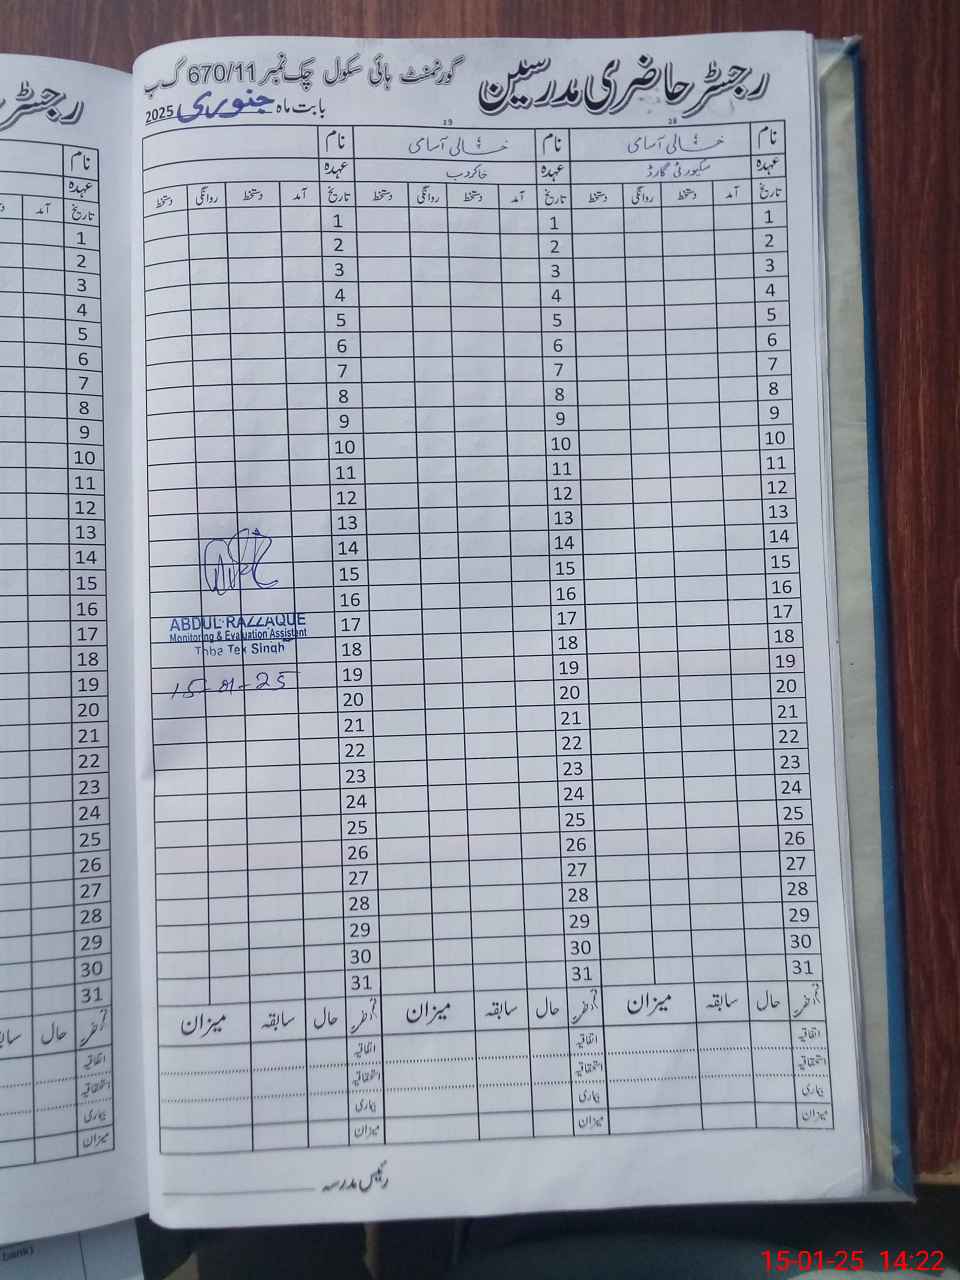 رجسٹر حاضری مدرسین گورنمنٹ ہائی سکول چک نمبر 670/11 گ ب
بابت ماہ جنوری 2025
28 29
نام خالی آسامی نام خالی آسامی نام
عہدہ سکیورٹی گارڈ عہدہ خاکروب عہدہ
تاریخ آمد دستخط روانگی دستخط تاریخ آمد دستخط روانگی دستخط تاریخ آمد دستخط روانگی دستخط
1 1 1
2 2 2
3 3 3
4 4 4
5 5 5
6 6 6
7 7 7
8 8 8
9 9 9
10 10 10
11 11 11
12 12 12
13 13 13
14 14 14
15 15 15
16 16 16
17 17 17
18 18 18
19 19 19
20 20 20
21 21 21
22 22 22
23 23 23
24 24 24
25 25 25
26 26 26
27 27 27
28 28 28
29 29 29
30 30 30
31 31 31
حال سابقہ میزان حال سابقہ میزان حال سابقہ میزان
اتفاقیہ اتفاقیہ اتفاقیہ
استحقاقیہ استحقاقیہ استحقاقیہ
بیماری بیماری بیماری
میزان میزان میزان
رئیس مدرسہ
ABDUL RAZZAQUE
Monitoring & Evaluation Assistant
Toba Tek Singh
15-01-25
رجسٹر
نام
عہدہ
تاریخ آمد
1
2
3
4
5
6
7
8
9
10
11
12
13
14
15
16
17
18
19
20
21
22
23
24
25
26
27
28
29
30
31
حال
اتفاقیہ
استحقاقیہ
بیماری
میزان
bank)
15-01-25 14:22